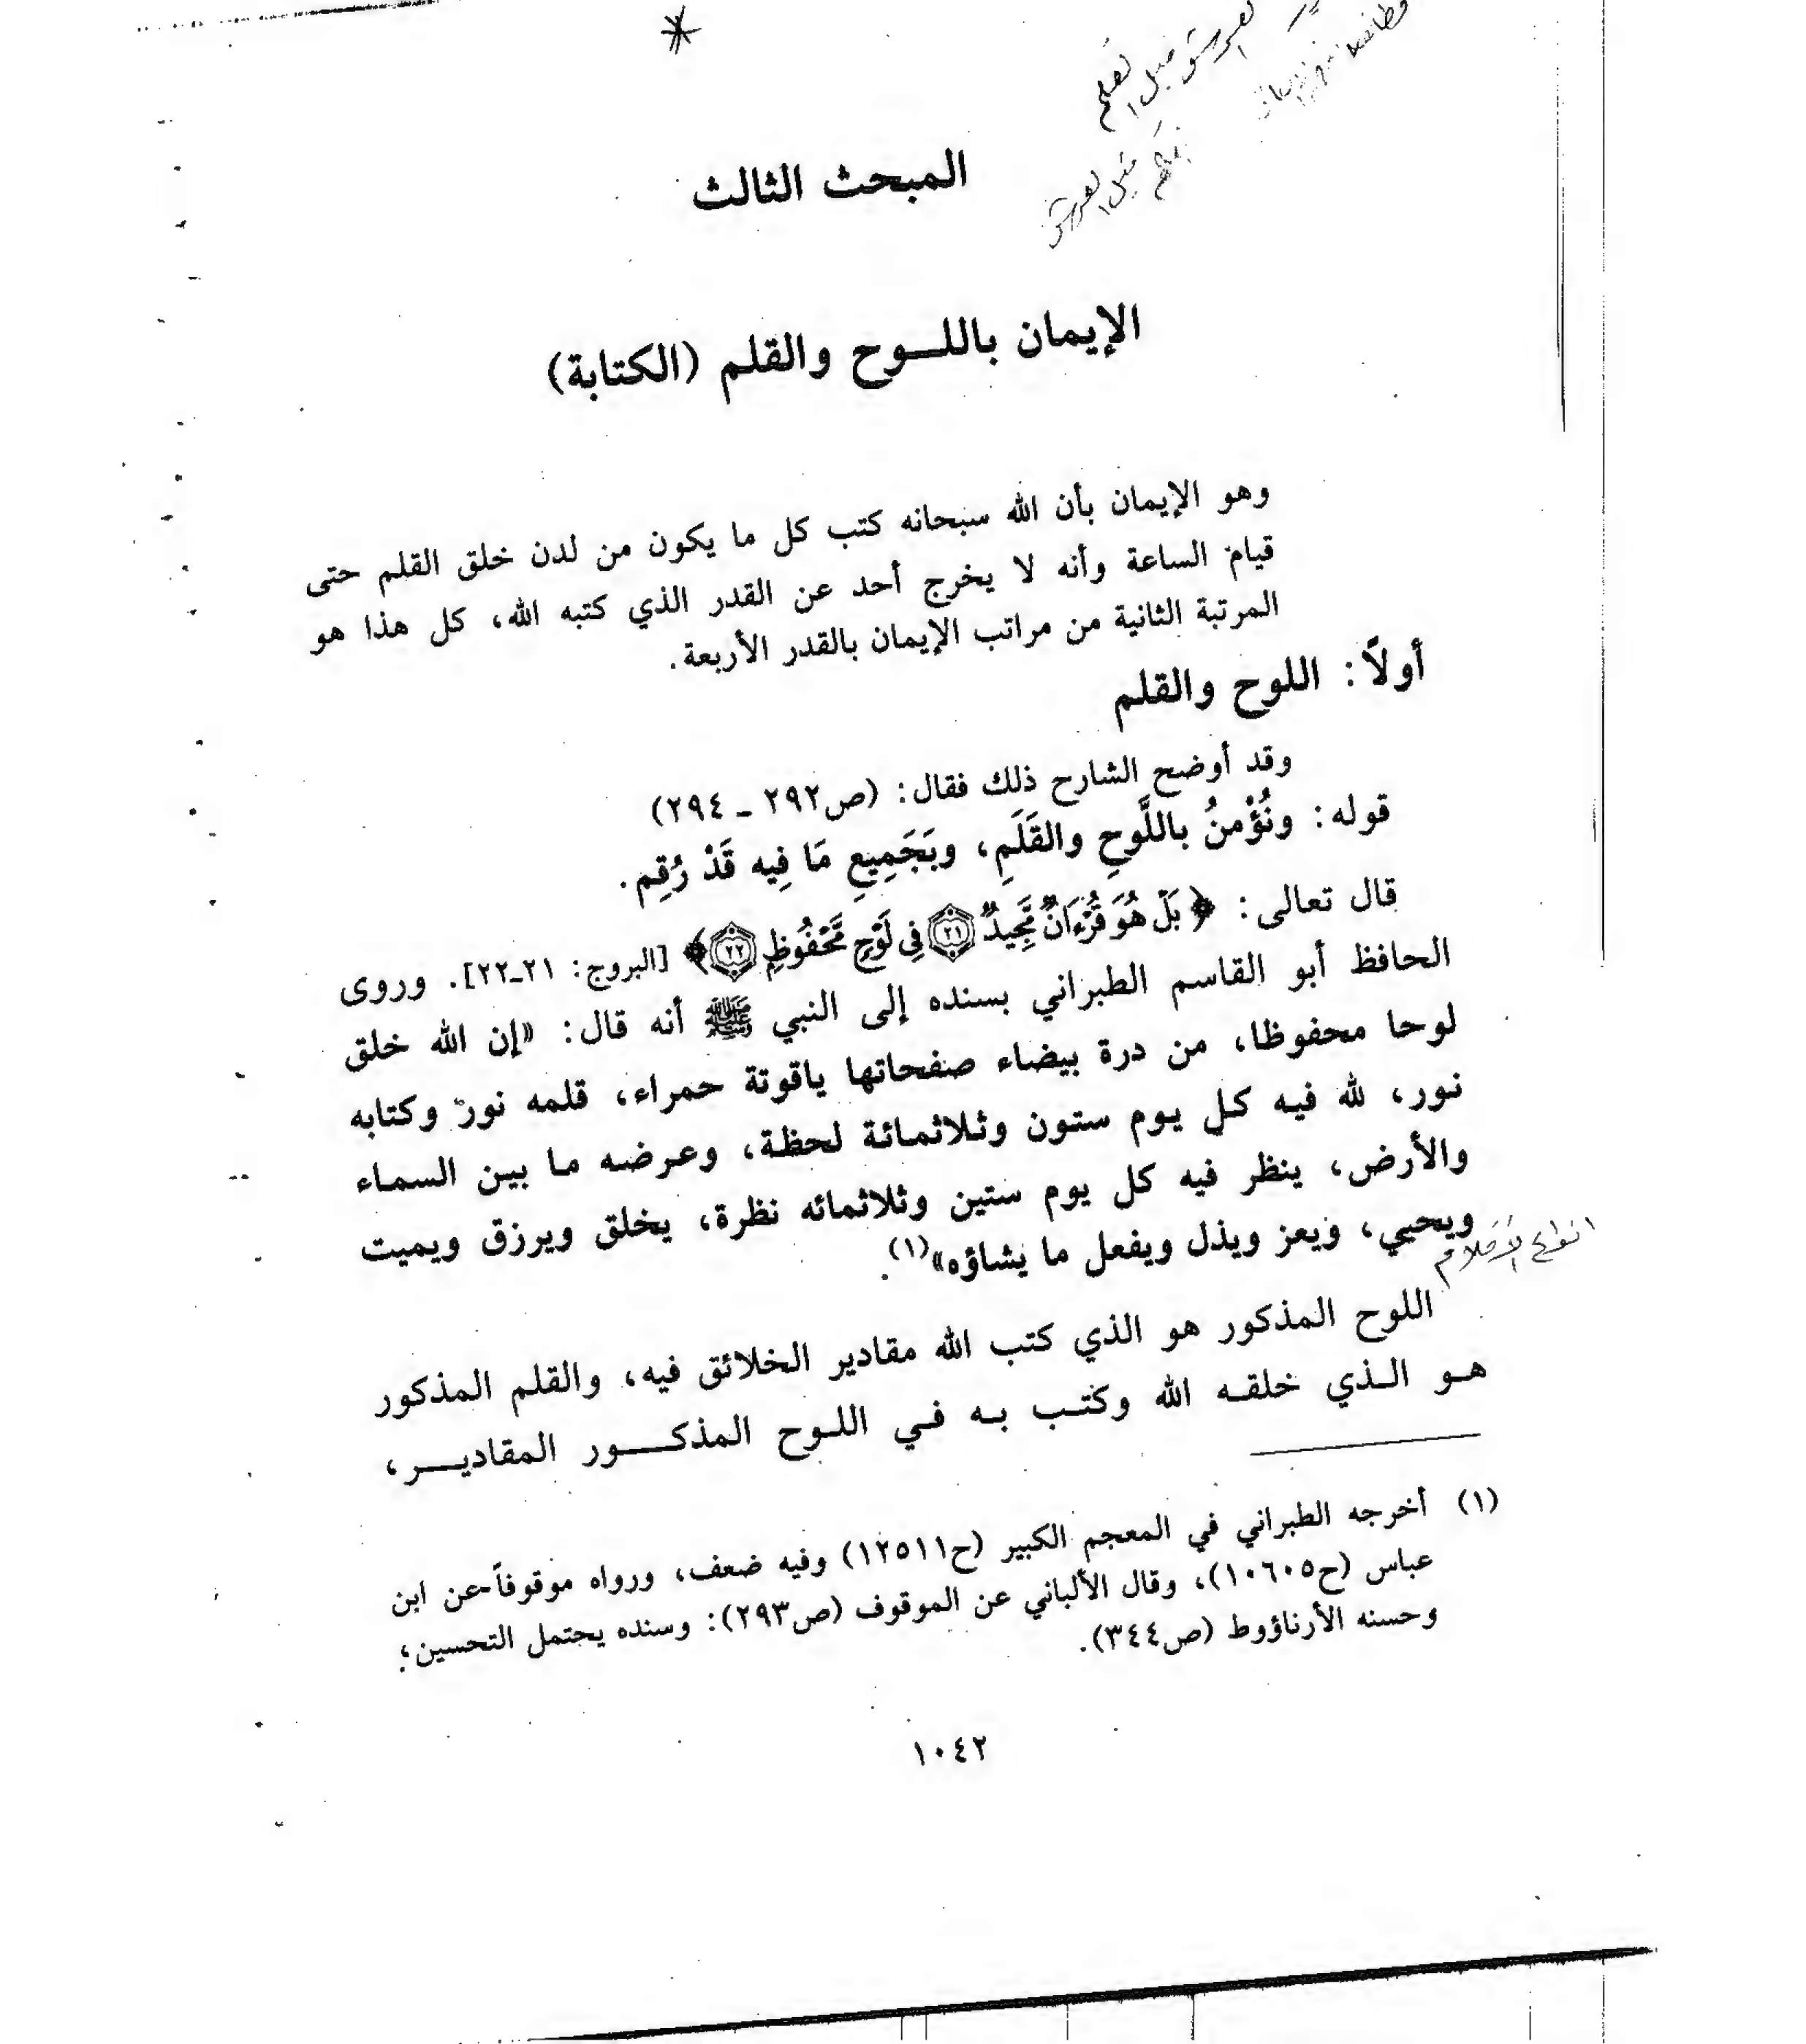 العرش قبل القلم
القلم قبل العرش
المبحث الثالث
الإيمان باللـــوح والقلم (الكتابة)
وهو الإيمان بأن الله سبحانه كتب كل ما يكون من لدن خلق القلم حتى
قيام الساعة وأنه لا يخرج أحد عن القدر الذي كتبه الله، كل هذا هو
المرتبة الثانية من مراتب الإيمان بالقدر الأربعة.
أولاً: اللوح والقلم
وقد أوضح الشارح ذلك فقال: (ص٢٩٢ ـ ٢٩٤)
قوله: ونُؤْمنُ باللَّوحِ والقَلَمِ، وبَجَمِيعِ مَا فِيه قَدْ رُقِم.
قال تعالى: ﴿بَلْ هُوَ قُرْءَانٌ مَّجِيدٌ ٢١ فِى لَوْحٍ مَّحْفُوظٍ ٢٢﴾ [البروج: ٢١ـ٢٢]. وروى
الحافظ أبو القاسم الطبراني بسنده إلى النبي ﷺ أنه قال: «إن الله خلق
لوحا محفوظا، من درة بيضاء صفحاتها ياقوتة حمراء، قلمه نور وكتابه
نور، لله فيه كل يوم ستون وثلاثمائة لحظة، وعرضه ما بين السماء
والأرض، ينظر فيه كل يوم ستين وثلاثمائه نظرة، يخلق ويرزق ويميت
ويحيي، ويعز ويذل ويفعل ما يشاؤه»(١).
انواع الأقلام
اللوح المذكور هو الذي كتب الله مقادير الخلائق فيه، والقلم المذكور
هـو الـذي خلقـه الله وكتـب بـه فـي اللـوح المذكـــور المقاديـــر،
(١) أخرجه الطبراني في المعجم الكبير (ح١٢٥١١) وفيه ضعف، ورواه موقوفاً عن ابن
عباس (ح١٠٦٠٥)، وقال الألباني عن الموقوف (ص٢٩٣): وسنده يحتمل التحسين؛
وحسنه الأرناؤوط (ص٣٤٤).
١٠٤٢